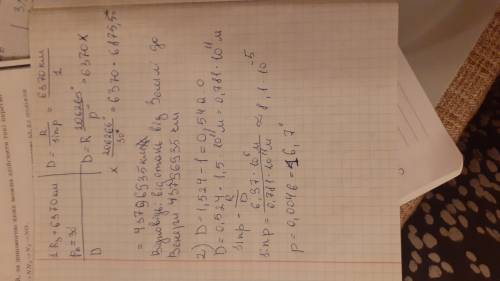 1 R₃ = 6370 км | D = R / sin p = 6370 км / 1
p₀ = 30 | D = R 206265" / p" = 6370 x
D | x 206265" / 30" = 6370 · 6875,5 =
= 43796935 км
Відповідь: відстань від Землі до
Венери 43796935 км
2) D = 1,524 - 1 = 0,524 а о
D = 0,524 · 1,5 · 10¹¹ м = 0,781 · 10¹¹ м
sin p = R / D
sin p = 6,37 · 10⁶ / 0,781 · 10¹¹ ≈ 8,1 · 10⁻⁵
p = 0,0046 = 16,7"